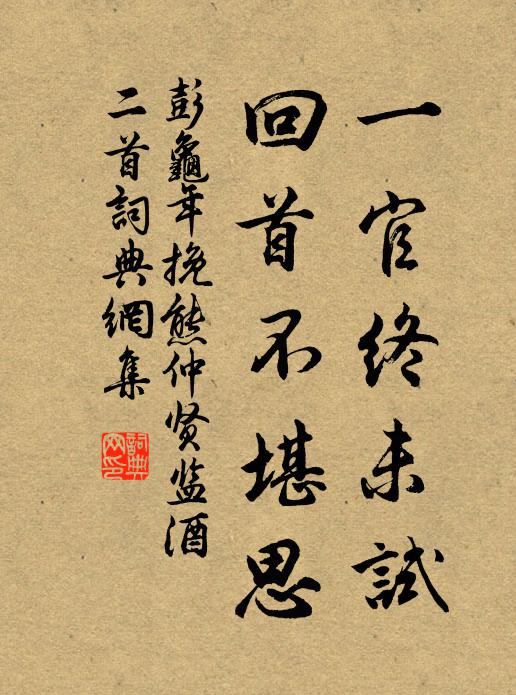 一官终未試
回首不堪思
彭龜年挽熊仲贤监酒
二首詞典網集
詞典
网印